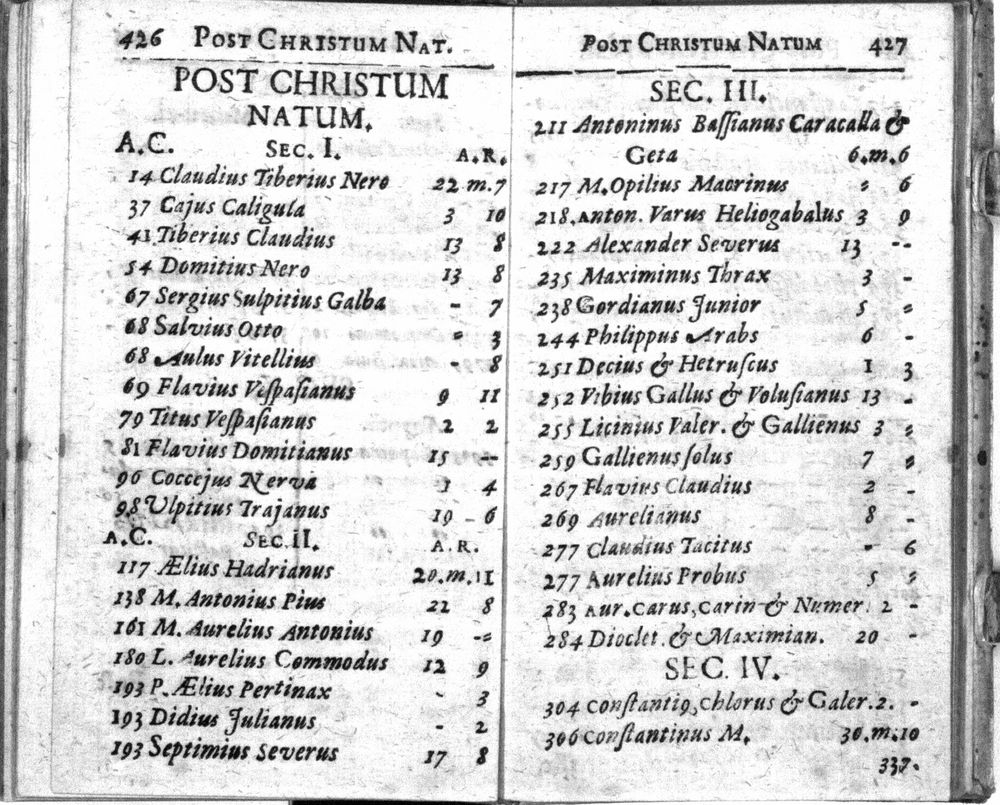 426 POST CHRISTUM NAT.
POST CHRISTUM
NATUM.
A.C. SEC. I. A.R.
14 Claudius Tiberius Nero 22 m. 7
37 Cajus Caligula 3 10
41 Tiberius Claudius 13 8
54 Domitius Nero 13 8
67 Sergius Sulpitius Galba - 7
68 Salvius Otto - 3
68 Aulus Vitellius 8
69 Flavius Veſpaſianus 9 11
79 Titus Veſpaſianus 2 2
81 Flavius Domitianus 15 -
96 Coccejus Nerva 1 4
98 Ulpitius Trajanus 19 - 6
A.C. SEC. II. A.R.
117 Ælius Hadrianus 20. m. 11
138 M. Antonius Pius 22 8
161 M. Aurelius Antonius 19 --
180 L. Aurelius Commodus 12 9
193 P. Ælius Pertinax - 3
193 Didius Julianus - 2
193 Septimius Severus 17 8
POST CHRISTUM NATUM 427
SEC. III.
211 Antoninus Baſſianus Caracalla &
Geta 6. m. 6
217 M. Opilius Macrinus - 6
218. Anton. Varus Heliogabalus 3 9
222 Alexander Severus 13 --
235 Maximinus Thrax 3 -
238 Gordianus Junior 5 -
244 Philippus Arabs 6 -
251 Decius & Hetruſcus 1 3
252 Vibius Gallus & Voluſianus 13 -
255 Licinius Valer. & Gallienus 3 -
259 Gallienus ſolus 7 -
267 Flavius Claudius 2 -
269 Aurelianus 8 -
277 Claudius Tacitus - 6
277 Aurelius Probus 5 -
283 Aur. Carus, Carin & Numer. 2 -
284 Dioclet. & Maximian. 20 -
SEC. IV.
304 Conſtantiꝰ, Chlorus & Galer. 2. -
306 Conſtantinus M. 30. m. 10
337.